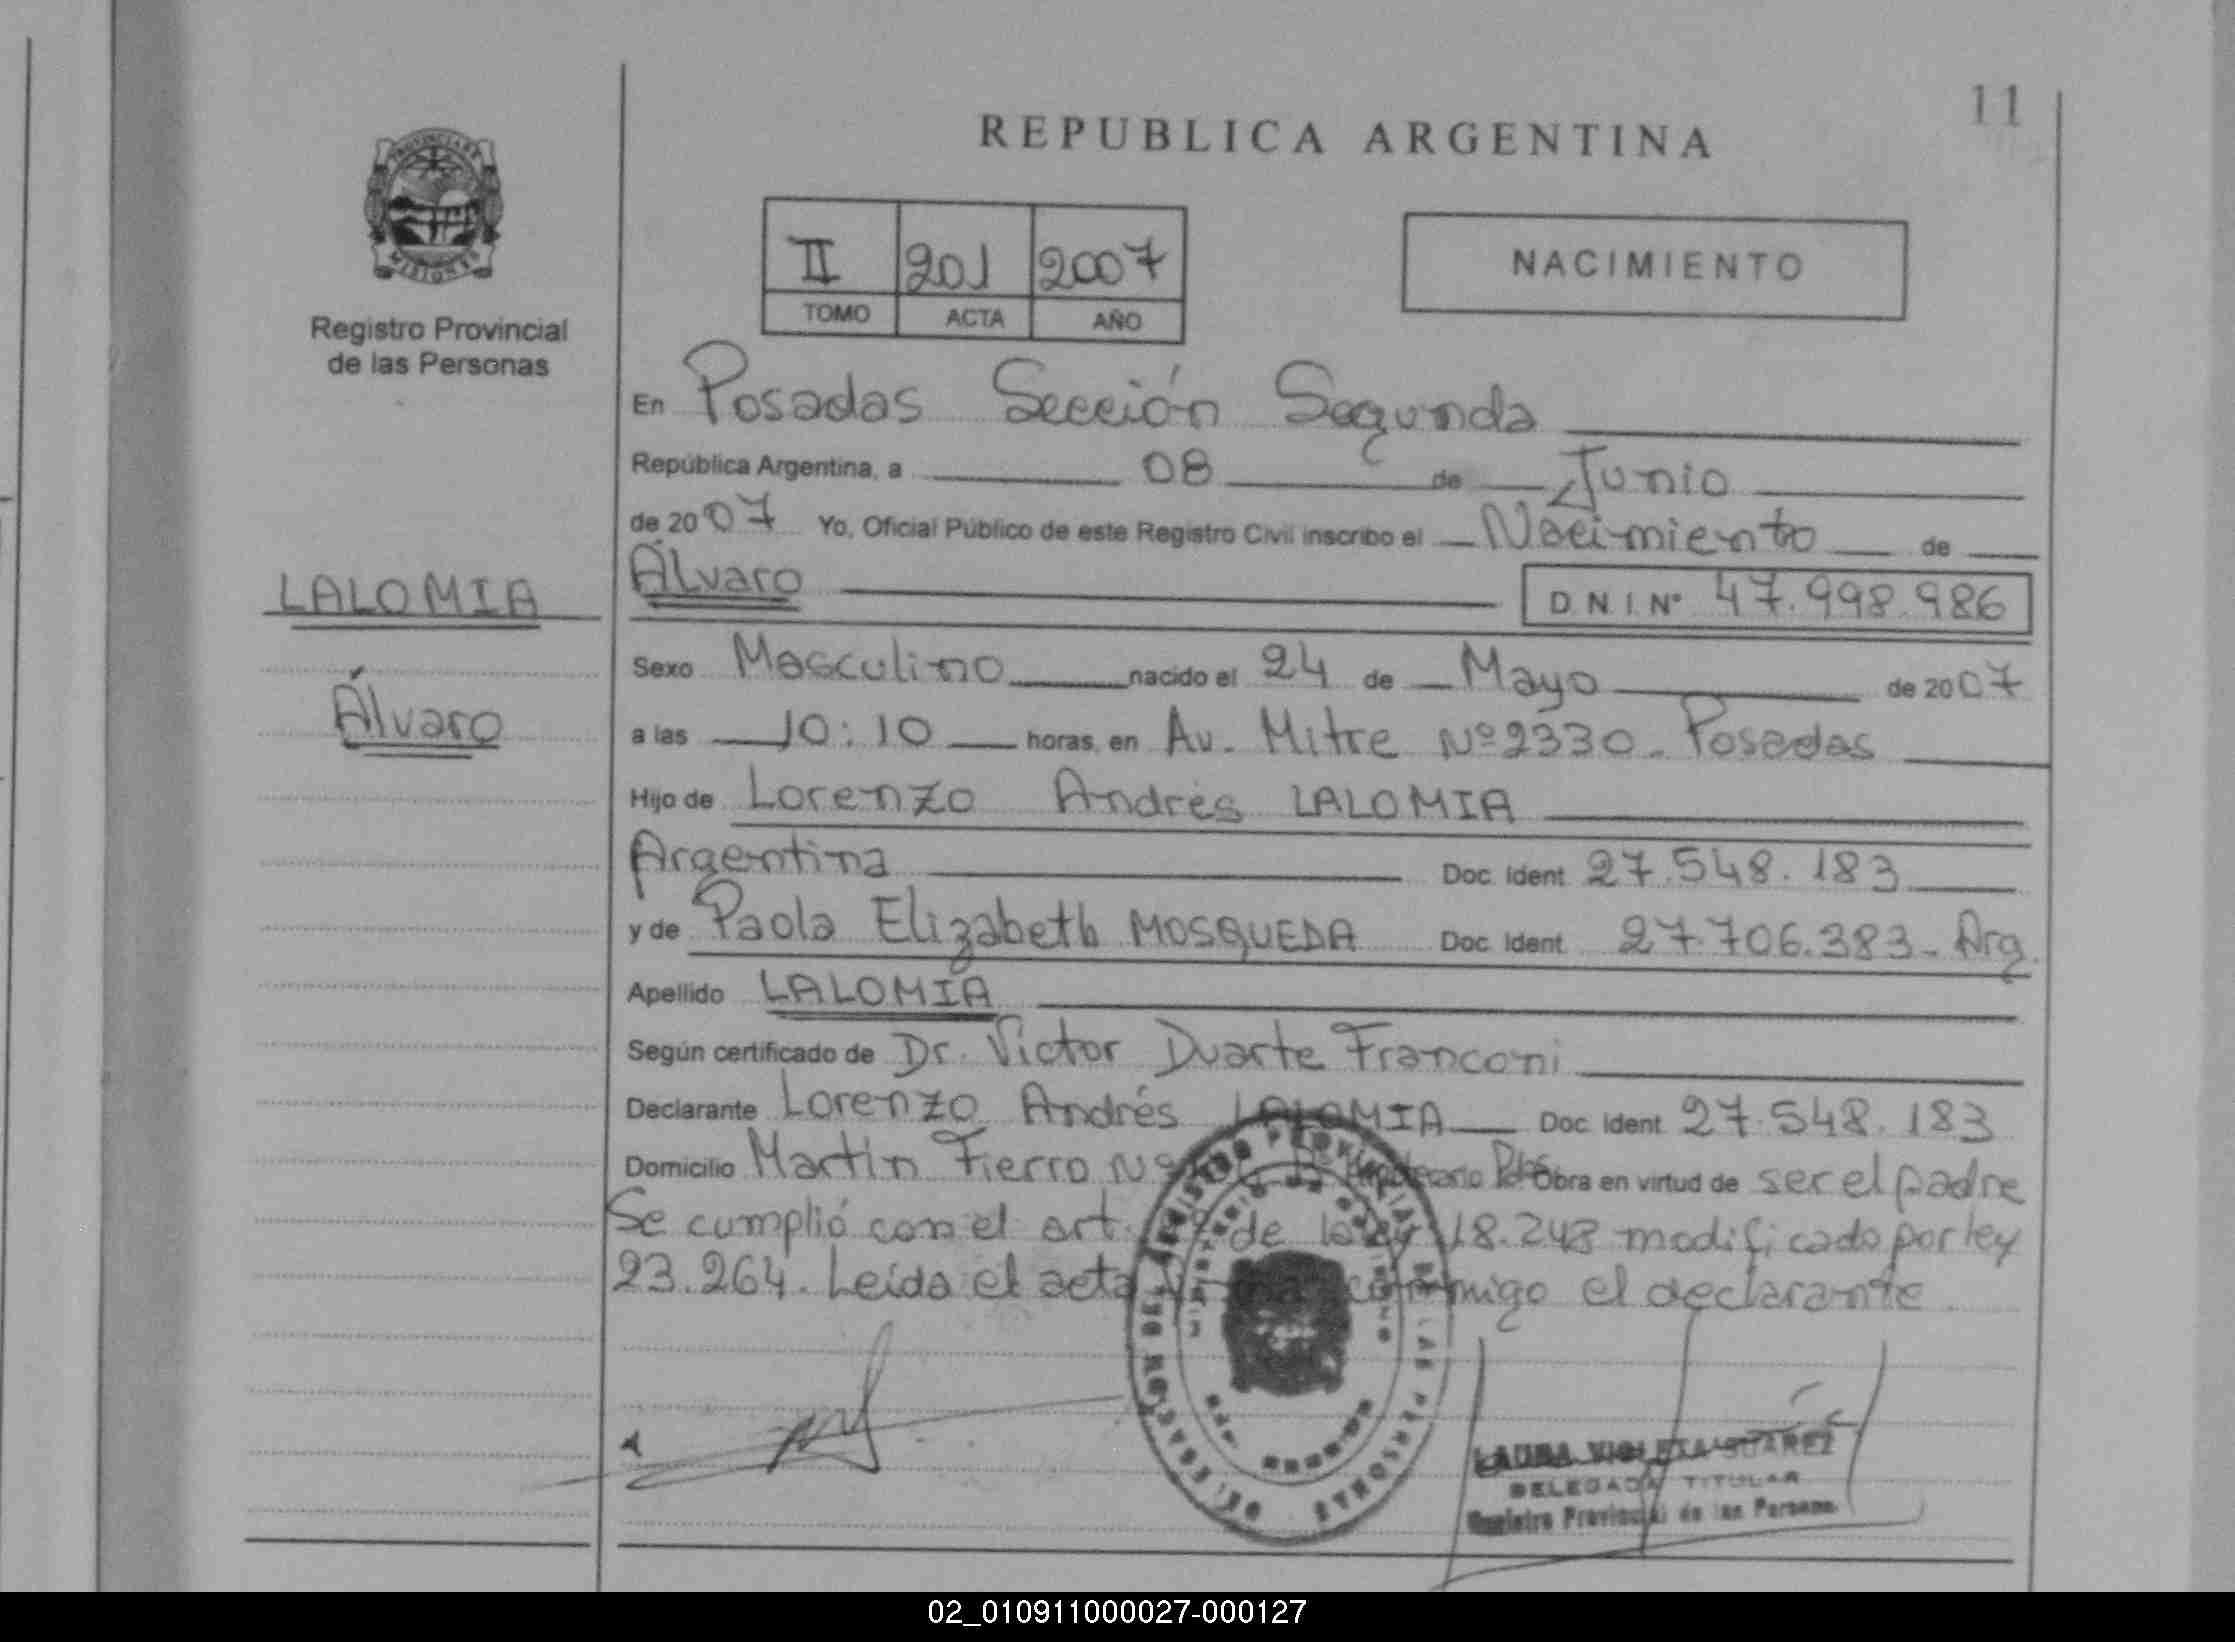 11
REPUBLICA ARGENTINA
PROVINCIA DE
MISIONES
Registro Provincial
de las Personas
II 201 2007
TOMO ACTA AÑO
NACIMIENTO
En Posadas Sección Segunda
República Argentina, a 08 de Junio
de 2007 Yo, Oficial Público de este Registro Civil inscribo el Nacimiento de
LALOMIA
Álvaro
Álvaro D.N.I. Nº 47.998.986
Sexo Masculino nacido el 24 de Mayo de 2007
a las 10:10 horas, en Av. Mitre Nº 2330 - Posadas
Hijo de Lorenzo Andrés LALOMIA
Argentina Doc. Ident. 27.548.183
y de Paola Elizabeth MOSQUEDA Doc. Ident. 27.706.383 - Arg.
Apellido LALOMIA
Según certificado de Dr. Victor Duarte Franconi
Declarante Lorenzo Andrés LALOMIA Doc. Ident. 27.548.183
Domicilio Martín Fierro Nº Obra en virtud de ser el padre
Se cumplió con el art. de la ley 18.248 modificado por ley
23.264. Leída el acta conmigo el declarante.
REGISTRO PROVINCIAL DE LAS PERSONAS
LAURA VIOLETA SUAREZ
DELEGADA TITULAR
Registro Provincial de las Personas
02_010911000027-000127